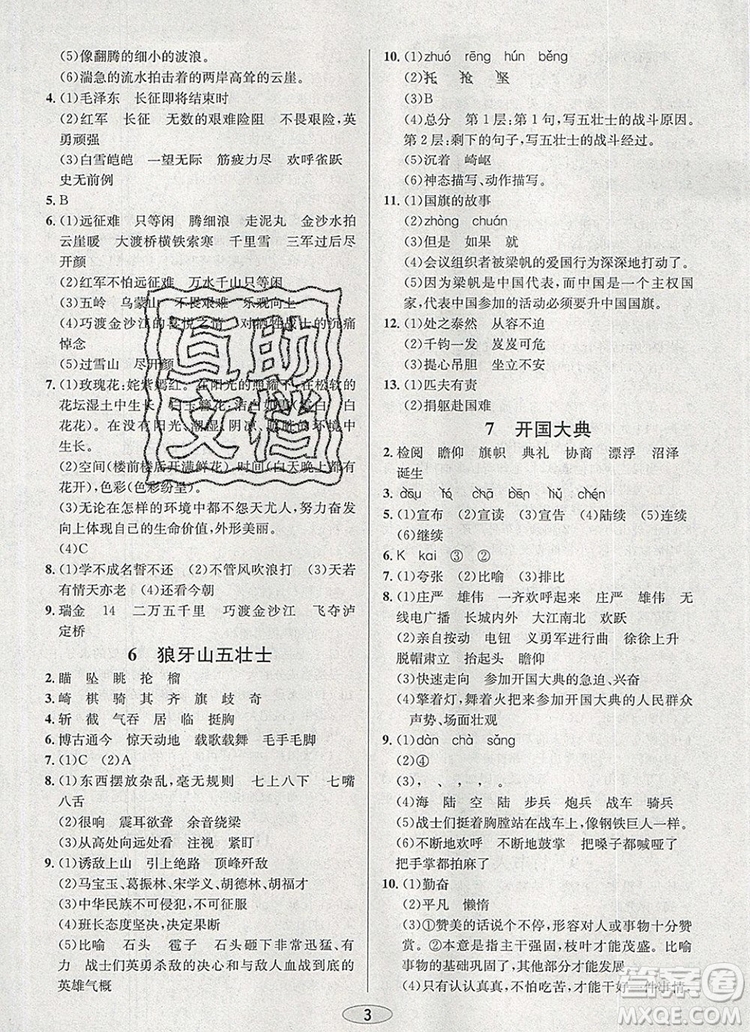 (5)像翻腾的细小的波浪。
(6)湍急的流水拍击着的两岸高耸的云崖。
4. (1)毛泽东 长征即将结束时
(2)红军 长征 无数的艰难险阻 不畏艰难 英
勇顽强
(3)白雪皑皑 一望无垠 筋疲力尽 欢呼雀跃
史无前例
5. B
6. (1)远征难 只等闲 腾细浪 走泥丸 金沙水拍
云崖暖 大渡桥横铁索寒 千里雪 三军过后尽
开颜
(2)红军不怕远征难 万水千山只等闲
(3)五岭 乌蒙山 不畏艰难 乐观向上
(4)巧渡金沙江的喜悦之情 对牺牲战士的沉痛
悼念
(5)过雪山 尽开颜
7. (1)玫瑰花:姹紫嫣红。在阳光的照耀下,在松软的
花坛湿土中生长。 白玉簪花:洁白如
在没有阳光、潮湿、阴凉、 的环境中
生长。
(2)空间(楼前楼后开满鲜花) 时间(白天晚上都有
花开),色彩(色彩纷呈)。
(3)无论在怎样的环境中都不怨天尤人,努力奋发
向上,实现自己的生命价值,外形美丽。
(4)C
8. (1)学不成名誓不还 (2)不管风吹浪打 (3)天若
有情天亦老 (4)还看今朝
9. 瑞金 14 二万五千里 巧渡金沙江 飞夺泸
定桥
6 狼牙山五壮士
2. 瞄 坠 眺 抡 榴
3. 崎 棋 骑 其 齐 旗 歧 奇
4. 斩 截 气吞 居 临 挺胸
6. 博古通今 惊天动地 载歌载舞 毛手毛脚
7. (1)C (2)A
8. (1)东西摆放杂乱,毫无规则 七上八下 七嘴
八舌
(2)很响 震耳欲聋 余音绕梁
(3)从高处向远处看 注视 紧盯
9. (1)诱敌上山 引上绝路 顶峰歼敌
(2)马宝玉、葛振林、宋学义、胡德林、胡福才
(3)中华民族不可侵犯,不可征服
(4)班长态度坚决,决定果断
(5)比喻 石头 雹子 石头砸下非常迅猛、有
力 战士们英勇杀敌的决心和与敌人血战到底的
英雄气概
10. (1)zhuó rēng hún běng
(2)托 抢 坚
(3)B
(4)总分 第1层:第1句,写五壮士的战斗原因。
第2层:剩下的句子,写五壮士的战斗经过。
(5)沉着 崎岖
(6)神态描写、动作描写。
11. (1)国旗的故事
(2)zhòng chuán
(3)但是 如果 就
(4)会议组织者被梁帆的爱国行为深深地打动了。
(5)因为梁帆是中国代表,而中国是一个主权国
家,中国参加的活动必须要升中国国旗。
12. (1)处之泰然 从容不迫
(2)千钧一发 岌岌可危
(3)提心吊胆 坐立不安
13. (1)匹夫有责
(2)捐躯赴国难
7 开国大典
2. 检阅 瞻仰 旗帜 典礼 协商 漂浮 沼泽
诞生
5. (1)宣布 (2)宣读 (3)宣告 (4)陆续 (5)连续
(6)继续
6. K kai ③ ②
7. (1)夸张 (2)比喻 (3)排比
8. (1)庄严 雄伟 一齐欢呼 庄严 雄伟 无
线电广播 长城内外 大江南北 欢跃
(2)亲自按动 电钮 义勇军进行曲 徐徐上升
脱帽肃立 抬起头 瞻仰
(3)快速走向 参加开国大典的急迫、兴奋
(4)擎着灯,舞着火把来参加开国大典的人民群众
声势、场面壮观
9. (1)dàn chà sǎng
(2)④
(3)、,、,。
(4)海 陆 空 陆 步兵 炮兵 战车 骑兵
(5)战士们挺着胸膛站在战车上,像钢铁巨人一样。
(6)不断地欢呼 不断地鼓掌 把嗓子都喊哑了
把手掌都拍麻了
10. (1)勤奋
(2)平凡 懒惰
(3)①赞美的话说个不停,形容对人或事物十分赞
赏。 ②树的主干强固,枝叶才能茂盛。比喻
事物的基础巩固了,其他方面才能发展。
(4)只有认认真真,实实在在,才能干好一件事情。
互助
文档
3
答案圈
MXQE.COM